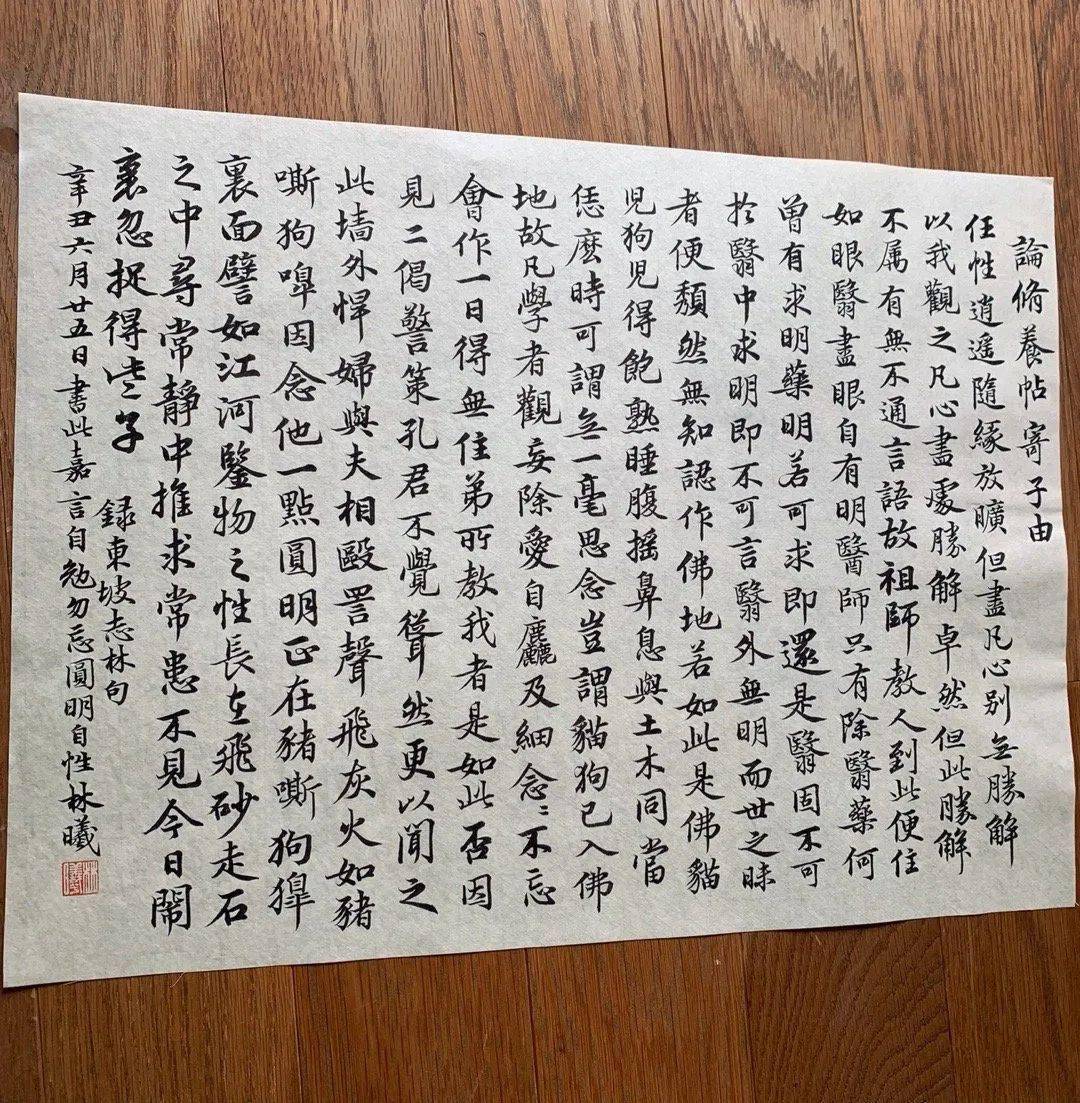 論脩養帖寄子由
任性逍遥隨緣放曠但盡凡心别無勝解
以我觀之凡心盡處勝解卓然但此勝解
不属有無不通言語故祖師教人到此便住
如眼翳盡眼自有明醫師只有除翳藥何
曾有求明藥明若可求即還是翳固不可
扵翳中求明即不可言翳外無明而世之昧
者便頽然無知認作佛地若如此是佛貓
児狗児得飽熟睡腹摇鼻息與土木同當
恁麽時可謂無一毫思念豈謂貓狗已入佛
地故凡學者觀妄除愛自麤及細念〻不忘
會作一日得無住弟所教我者是如此否因
見二偈警策孔君不覺聳然更以聞之
此墙外悍婦與夫相毆詈聲飛灰火如豬
嘶狗嘷因念他一點圓明正在豬嘶狗獋
裏面譬如江河鑒物之性長在飛砂走石
之中尋常靜中推求常患不見今日鬧
裏忽捉得些子
録東坡志林句
辛丑六月廿五日書此嘉言自勉勿忘圓明自性林曦